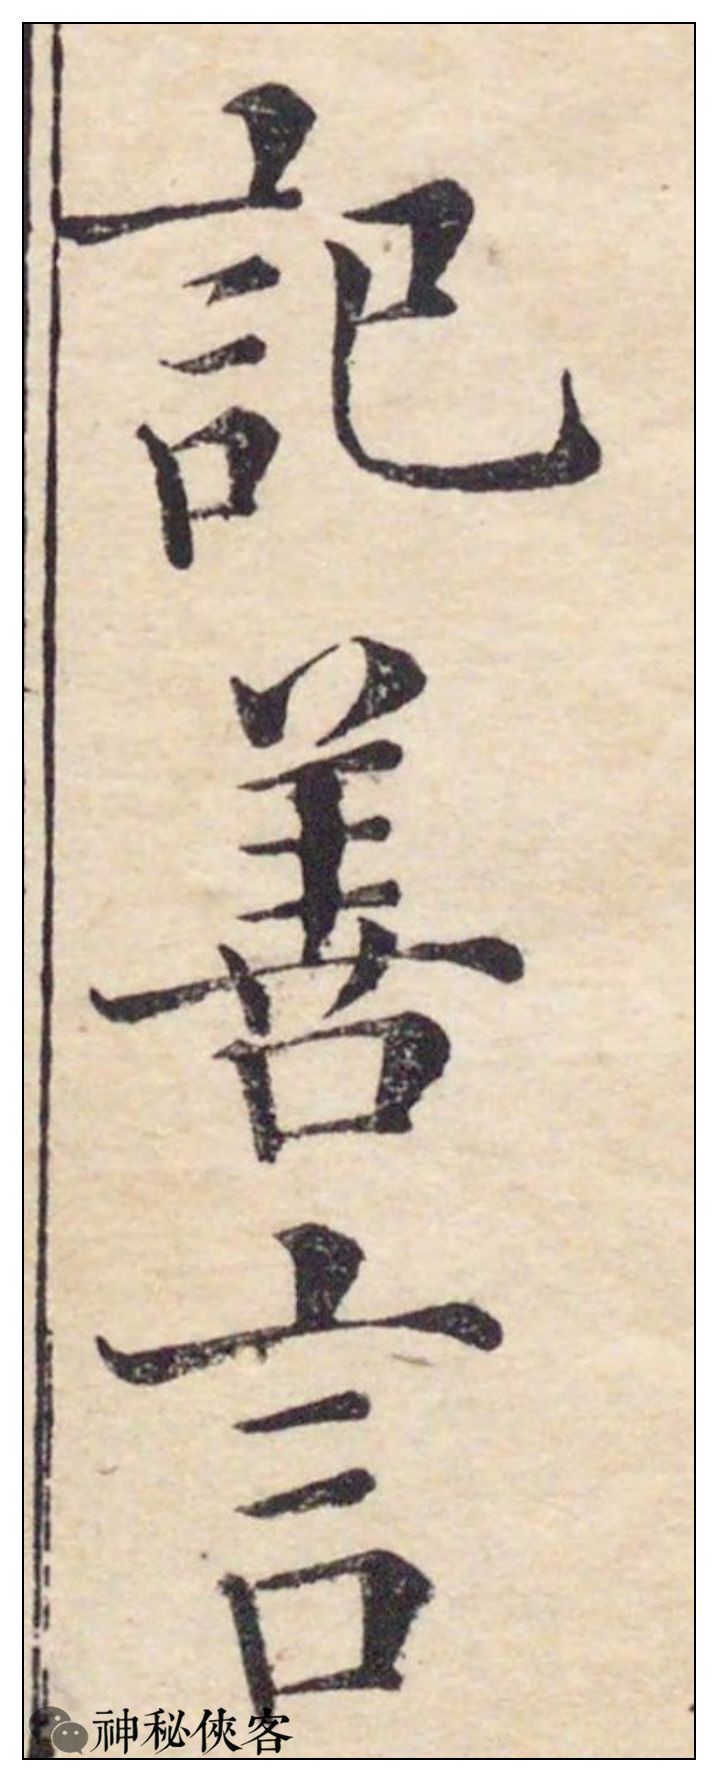 記善言
神秘俠客